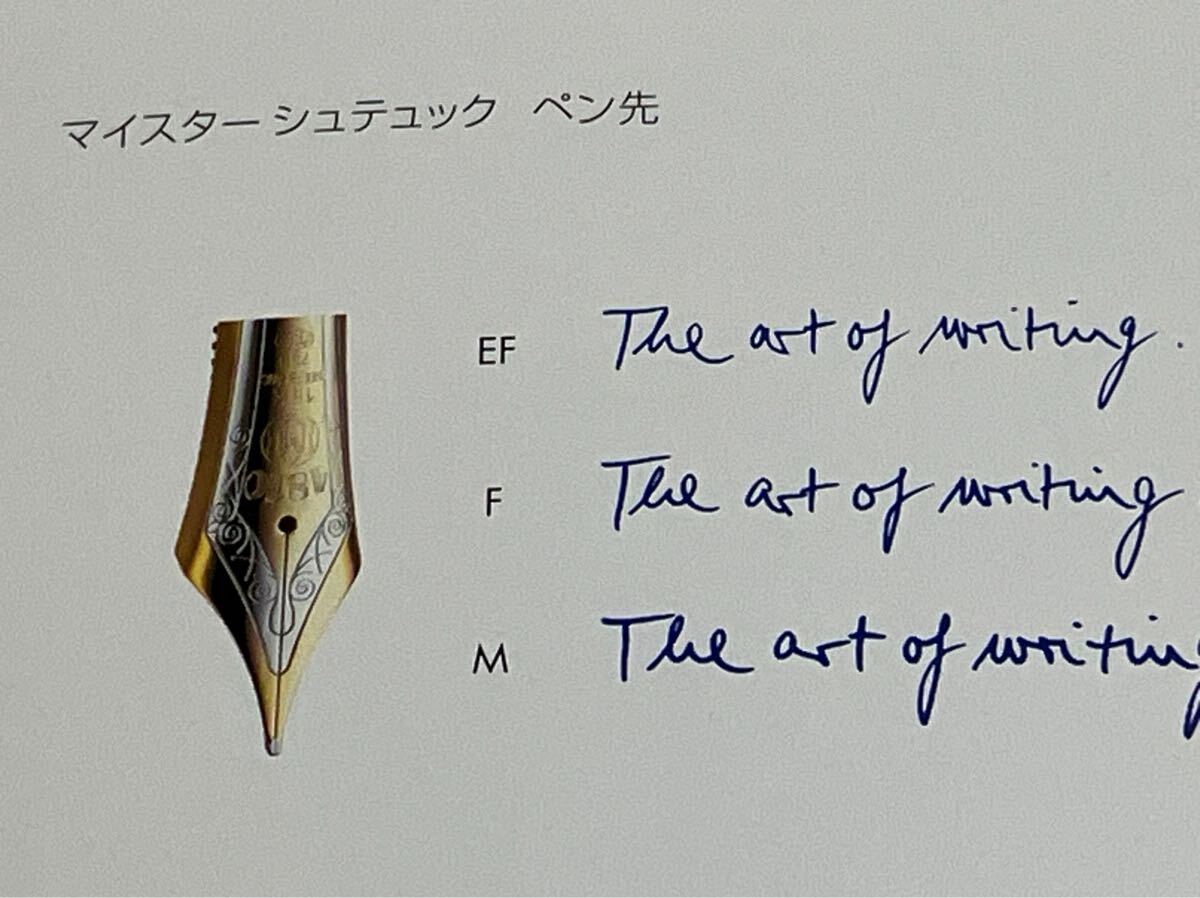 マイスターシュテュック ペン先
EF The art of writing.
F The art of writing
M The art of writing